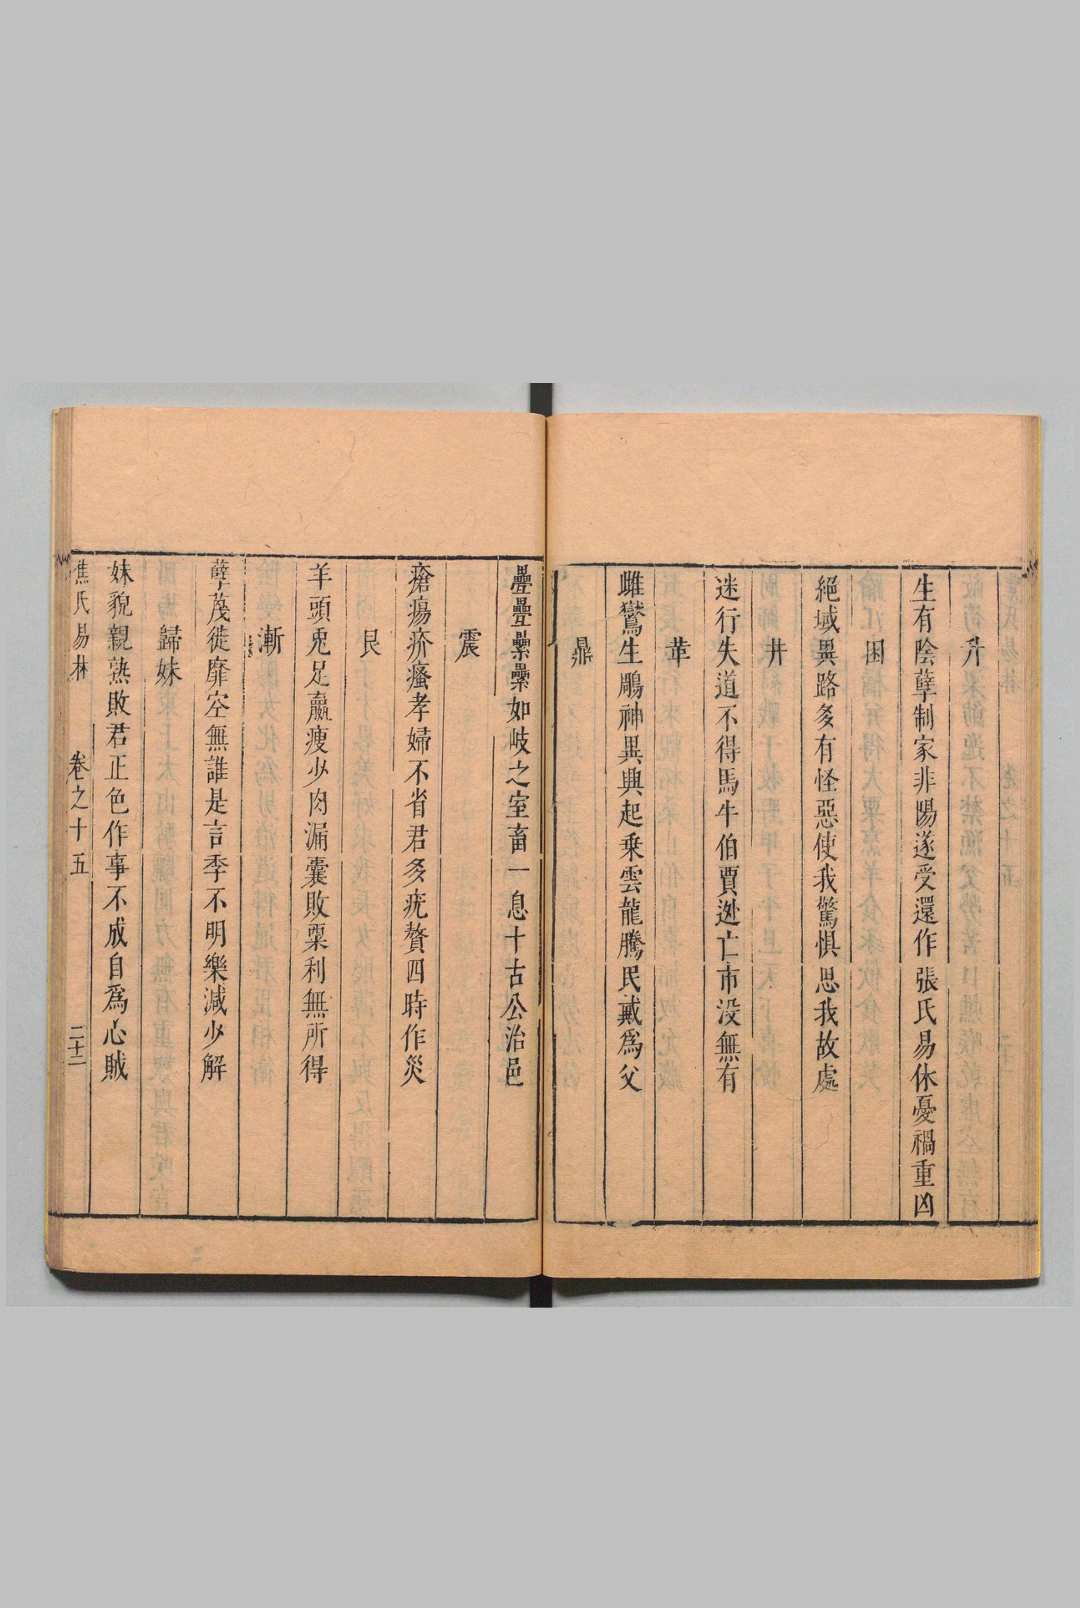 升
生有陰孽制家非陽遂受還作張氏易休憂禍重凶
困
絕域異路多有怪惡使我驚惧思我故處
井
迷行失道不得馬牛伯賈逃亡市没無有
革
雌鷙生鵰神異興起乗雲龍騰民戴爲父
鼎
疊疊纍纍如岐之室畜一息十古公治邑
震
瘡瘍疥瘙孝婦不省君多疣贅四時作災
艮
羊頭兎足羸瘦少肉漏囊敗粟利無所得
漸
孽茂徙靡空無誰是言季不明樂減少解
歸妹
妹貌親熟敗君正色作事不成自爲心賊
焦氏易林 卷之十五 二十二